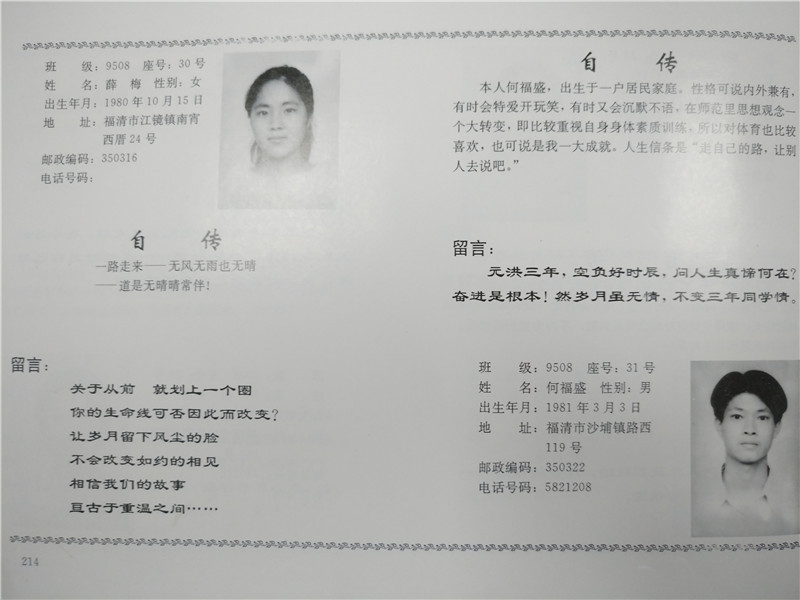 班　　级：9508　座号：30 号
姓　　名：薛　梅　性别：女
出生年月：1980 年 10 月 15 日
地　　址：福清市江镜镇南宵
西厝 24 号
邮政编码：350316
电话号码：
自　　传
一路走来——无风无雨也无晴
——道是无晴晴常伴！
留言：
关于从前　就划上一个圈
你的生命线可否因此而改变？
让岁月留下风尘的脸
不会改变如约的相见
相信我们的故事
亘古于重温之间……
214
自　　传
本人何福盛，出生于一户居民家庭。性格可说内外兼有，
有时会特爱开玩笑，有时又会沉默不语，在师范里思想观念一
个大转变，即比较重视自身身体素质训练，所以对体育也比较
喜欢，也可说是我一大成就。人生信条是“走自己的路，让别
人去说吧。”
留言：
元洪三年，空负好时辰，问人生真谛何在？
奋进是根本！然岁月虽无情，不变三年同学情。
班　　级：9508　座号：31 号
姓　　名：何福盛　性别：男
出生年月：1981 年 3 月 3 日
地　　址：福清市沙埔镇路西
119 号
邮政编码：350322
电话号码：5821208